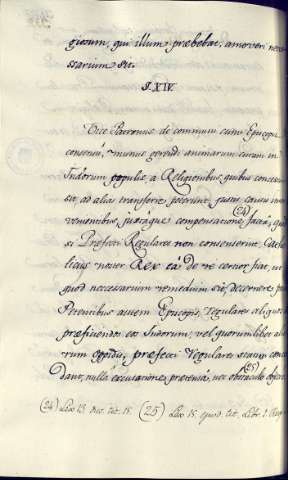 giosum, qui illum præbebat, amoveri nece-
ssarium sit.
§. XIV.
Vice Patronus de communi cum Episcopo
consensu, munus gerendi animarum curam in
Indorum populis a Religionibus, quibus concess
sit, ad alias transferre poterint, justis causis inter
venientibus, justaque compensatione facta, (24)
si Præfecti Regulares non consenserint, Catho
licus noster Rex ea de re certior fiat, ut
quod necessarium remedium sit, decernere
Petentibus autem Episcopis, regulares aliquos
præficiendos eos Indorum, vel quorumlibet alio
rum oppidis, præfecti regulares statim conce
dant, nulla excusatione prætensa, nec obstaculo (25)
(24) Lex 13. tit. 15. (25) Lex 15. ejusd. tit. Libr. 1.